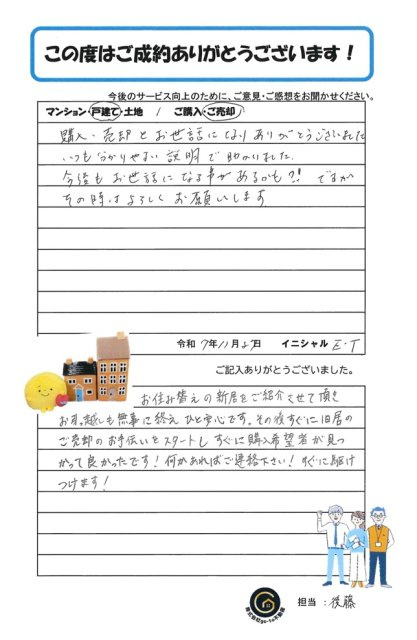 この度はご成約ありがとうございます！
今後のサービス向上のために、ご意見・ご感想をお聞かせください。
マンション・戸建て・土地 / ご購入・ご売却
購入・売却とお世話になりありがとうございました
いつも分かりやすい説明で助かりました。
今後もお世話になる事があるかも?!ですが
その時はよろしくお願いします
令和 7年11月27日 イニシャル E・T
ご記入ありがとうございました。
お住み替えの新居をご紹介させて頂き
お引越しも無事に終え ひと安心です。その後すぐに旧居の
ご売却のお手伝いをスタートし すぐに購入希望者が見つ
かって良かったです！何かあればご連絡下さい！すぐに駆け
つけます！
担当：後藤